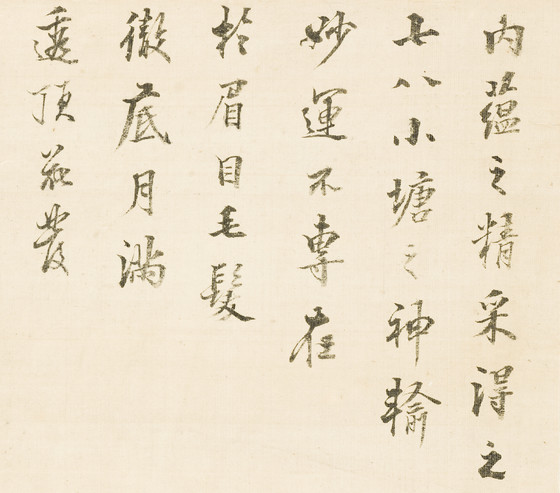 內蘊之精采得之
七八小塘之神輸
妙運不專在
於眉目毛髮
徹底月滿
透頂花發